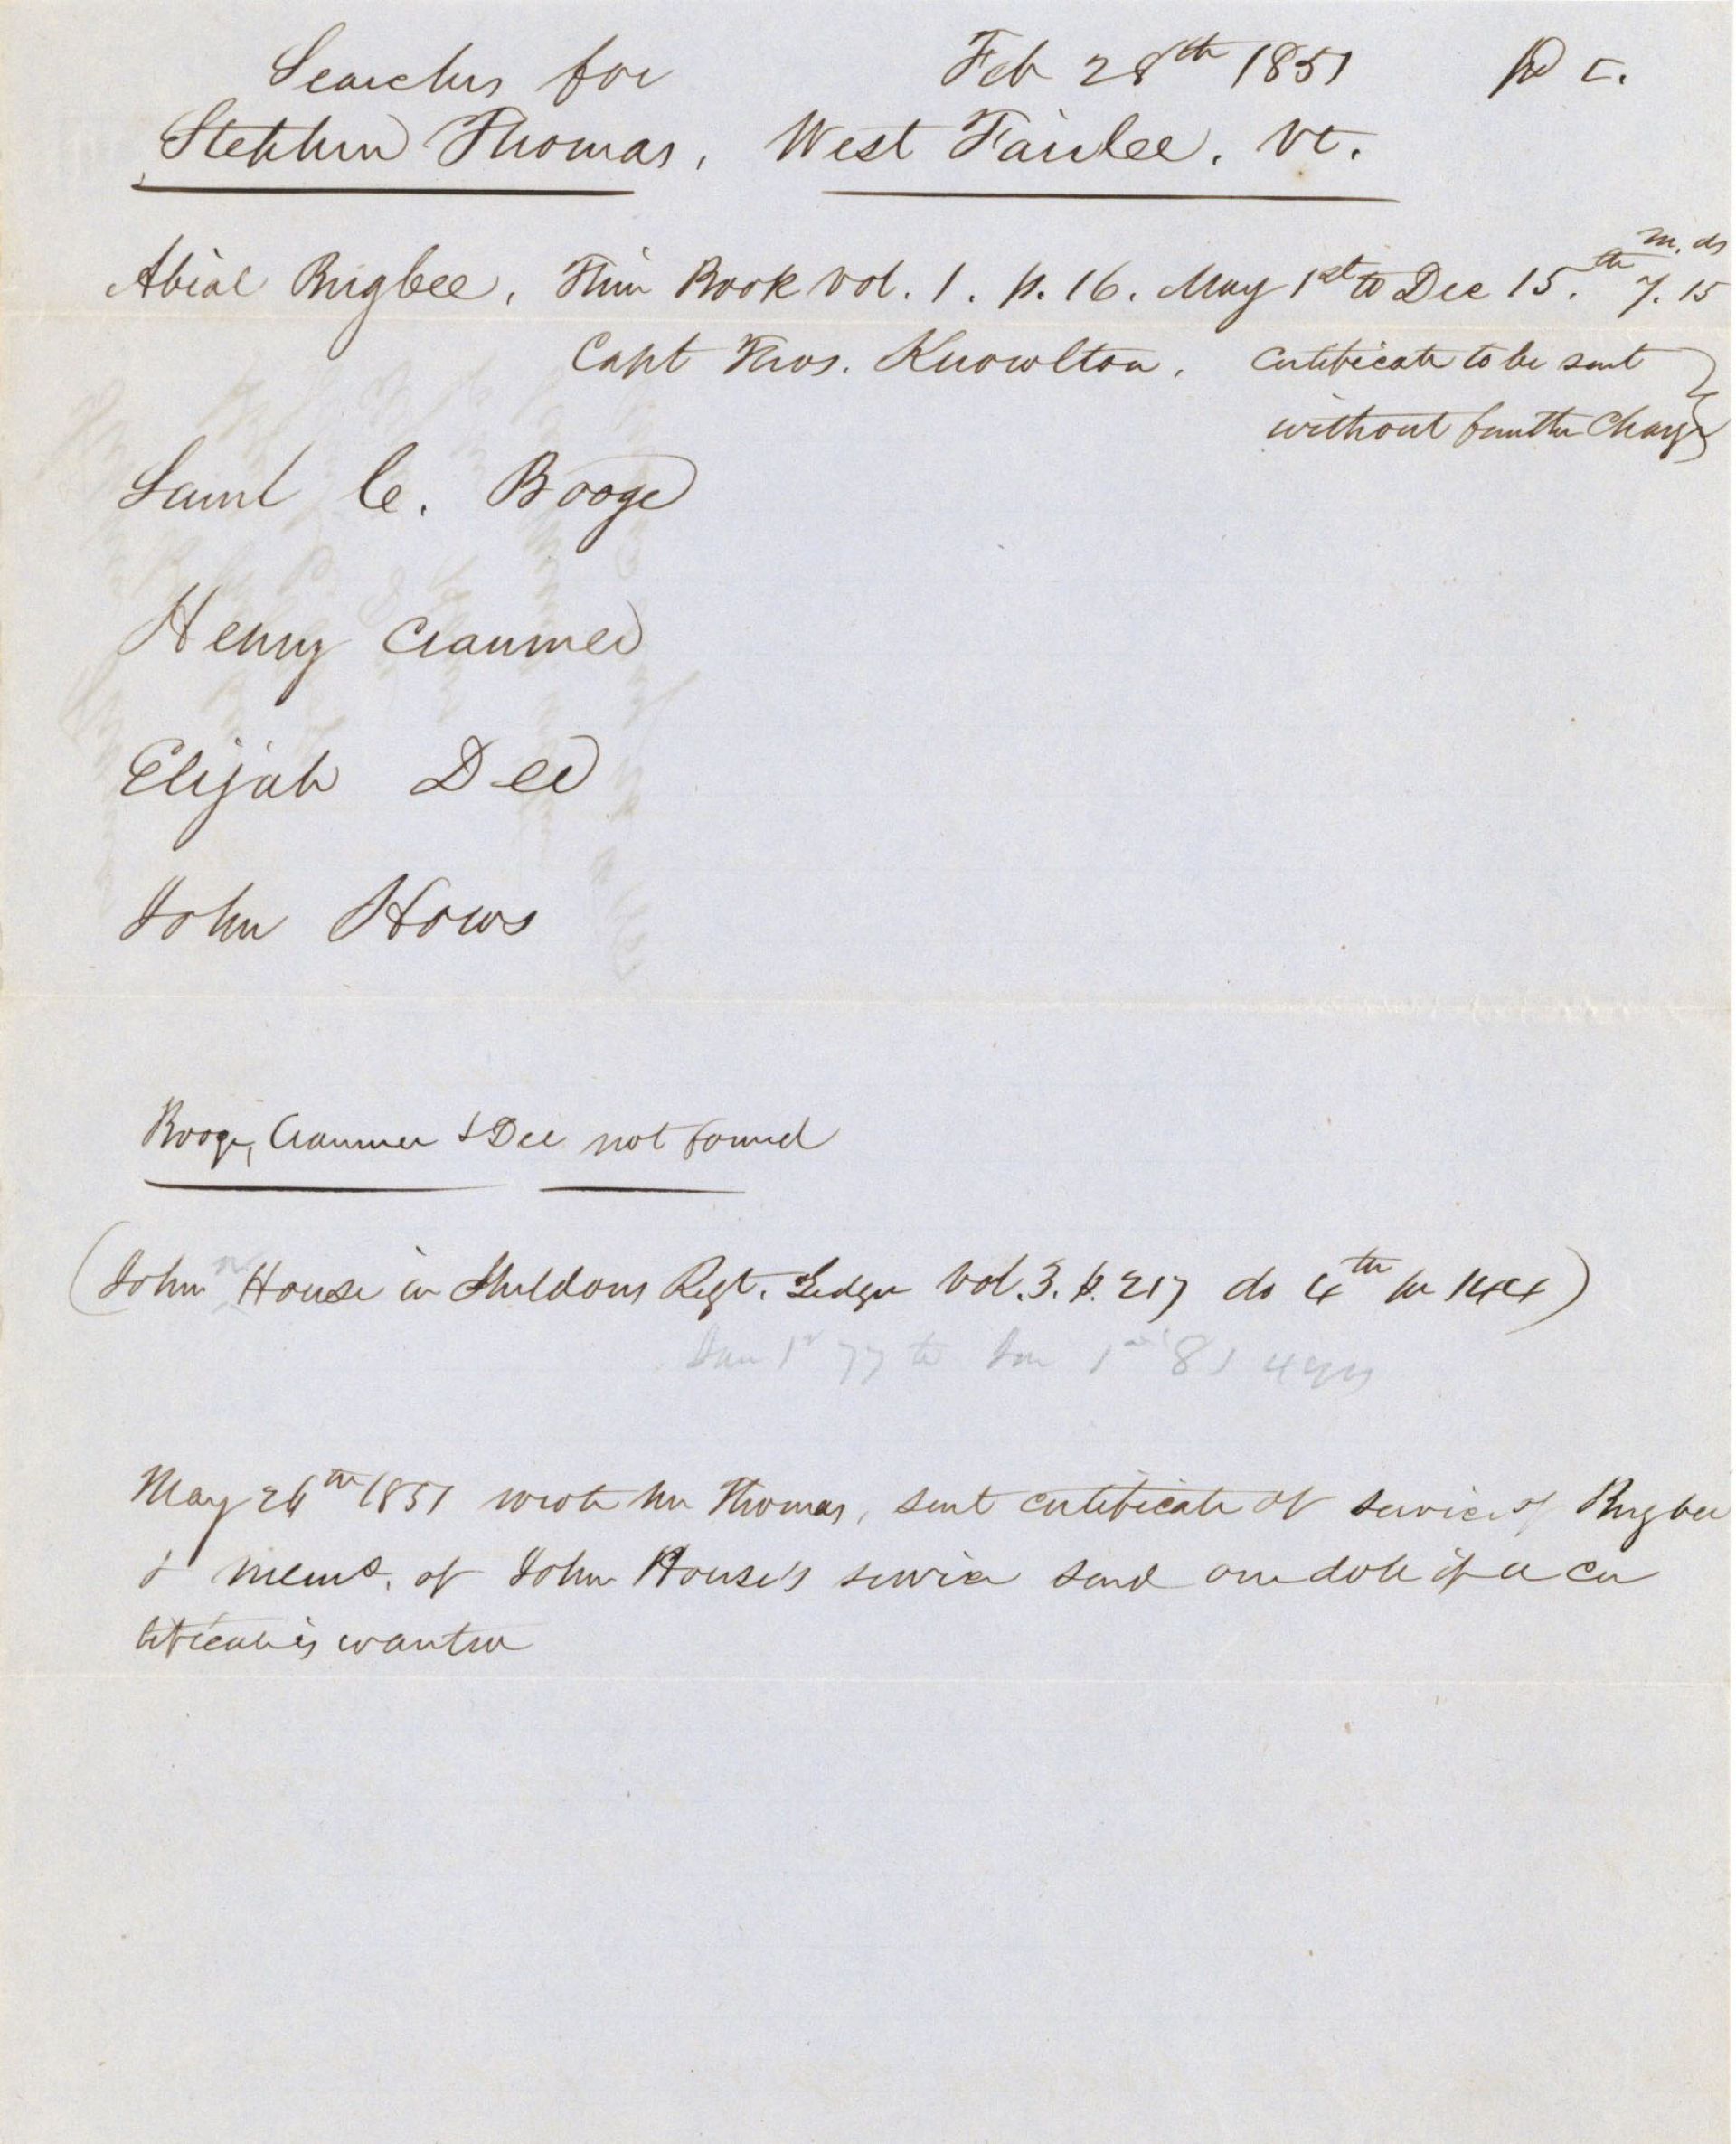 Searches for Feb 28th 1851 Pd
Stephen Thomas, West Fairlee, Vt.
Abial Bugbee, Thin Book vol. 1. p. 16. May 1st to Dec 15.th 7. 15
m. ds
Capt Thos. Knowlton. Certificate to be sent
without further Charge
Saml C. Booge
Henry Cranmer
Elijah Dee
John Hows
Booge, Cranmer & Dee not found
(John House in Sheldons Regt. Ledger Vol. 3. p. 217 do 4th for 144)
Jan 1st 77 to Jan 1st 81 4 yrs
May 26th 1851 wrote Mr Thomas, sent certificate of service of Bugbee
& memo. of John House's service send one doll if a cer
tificate is wanted